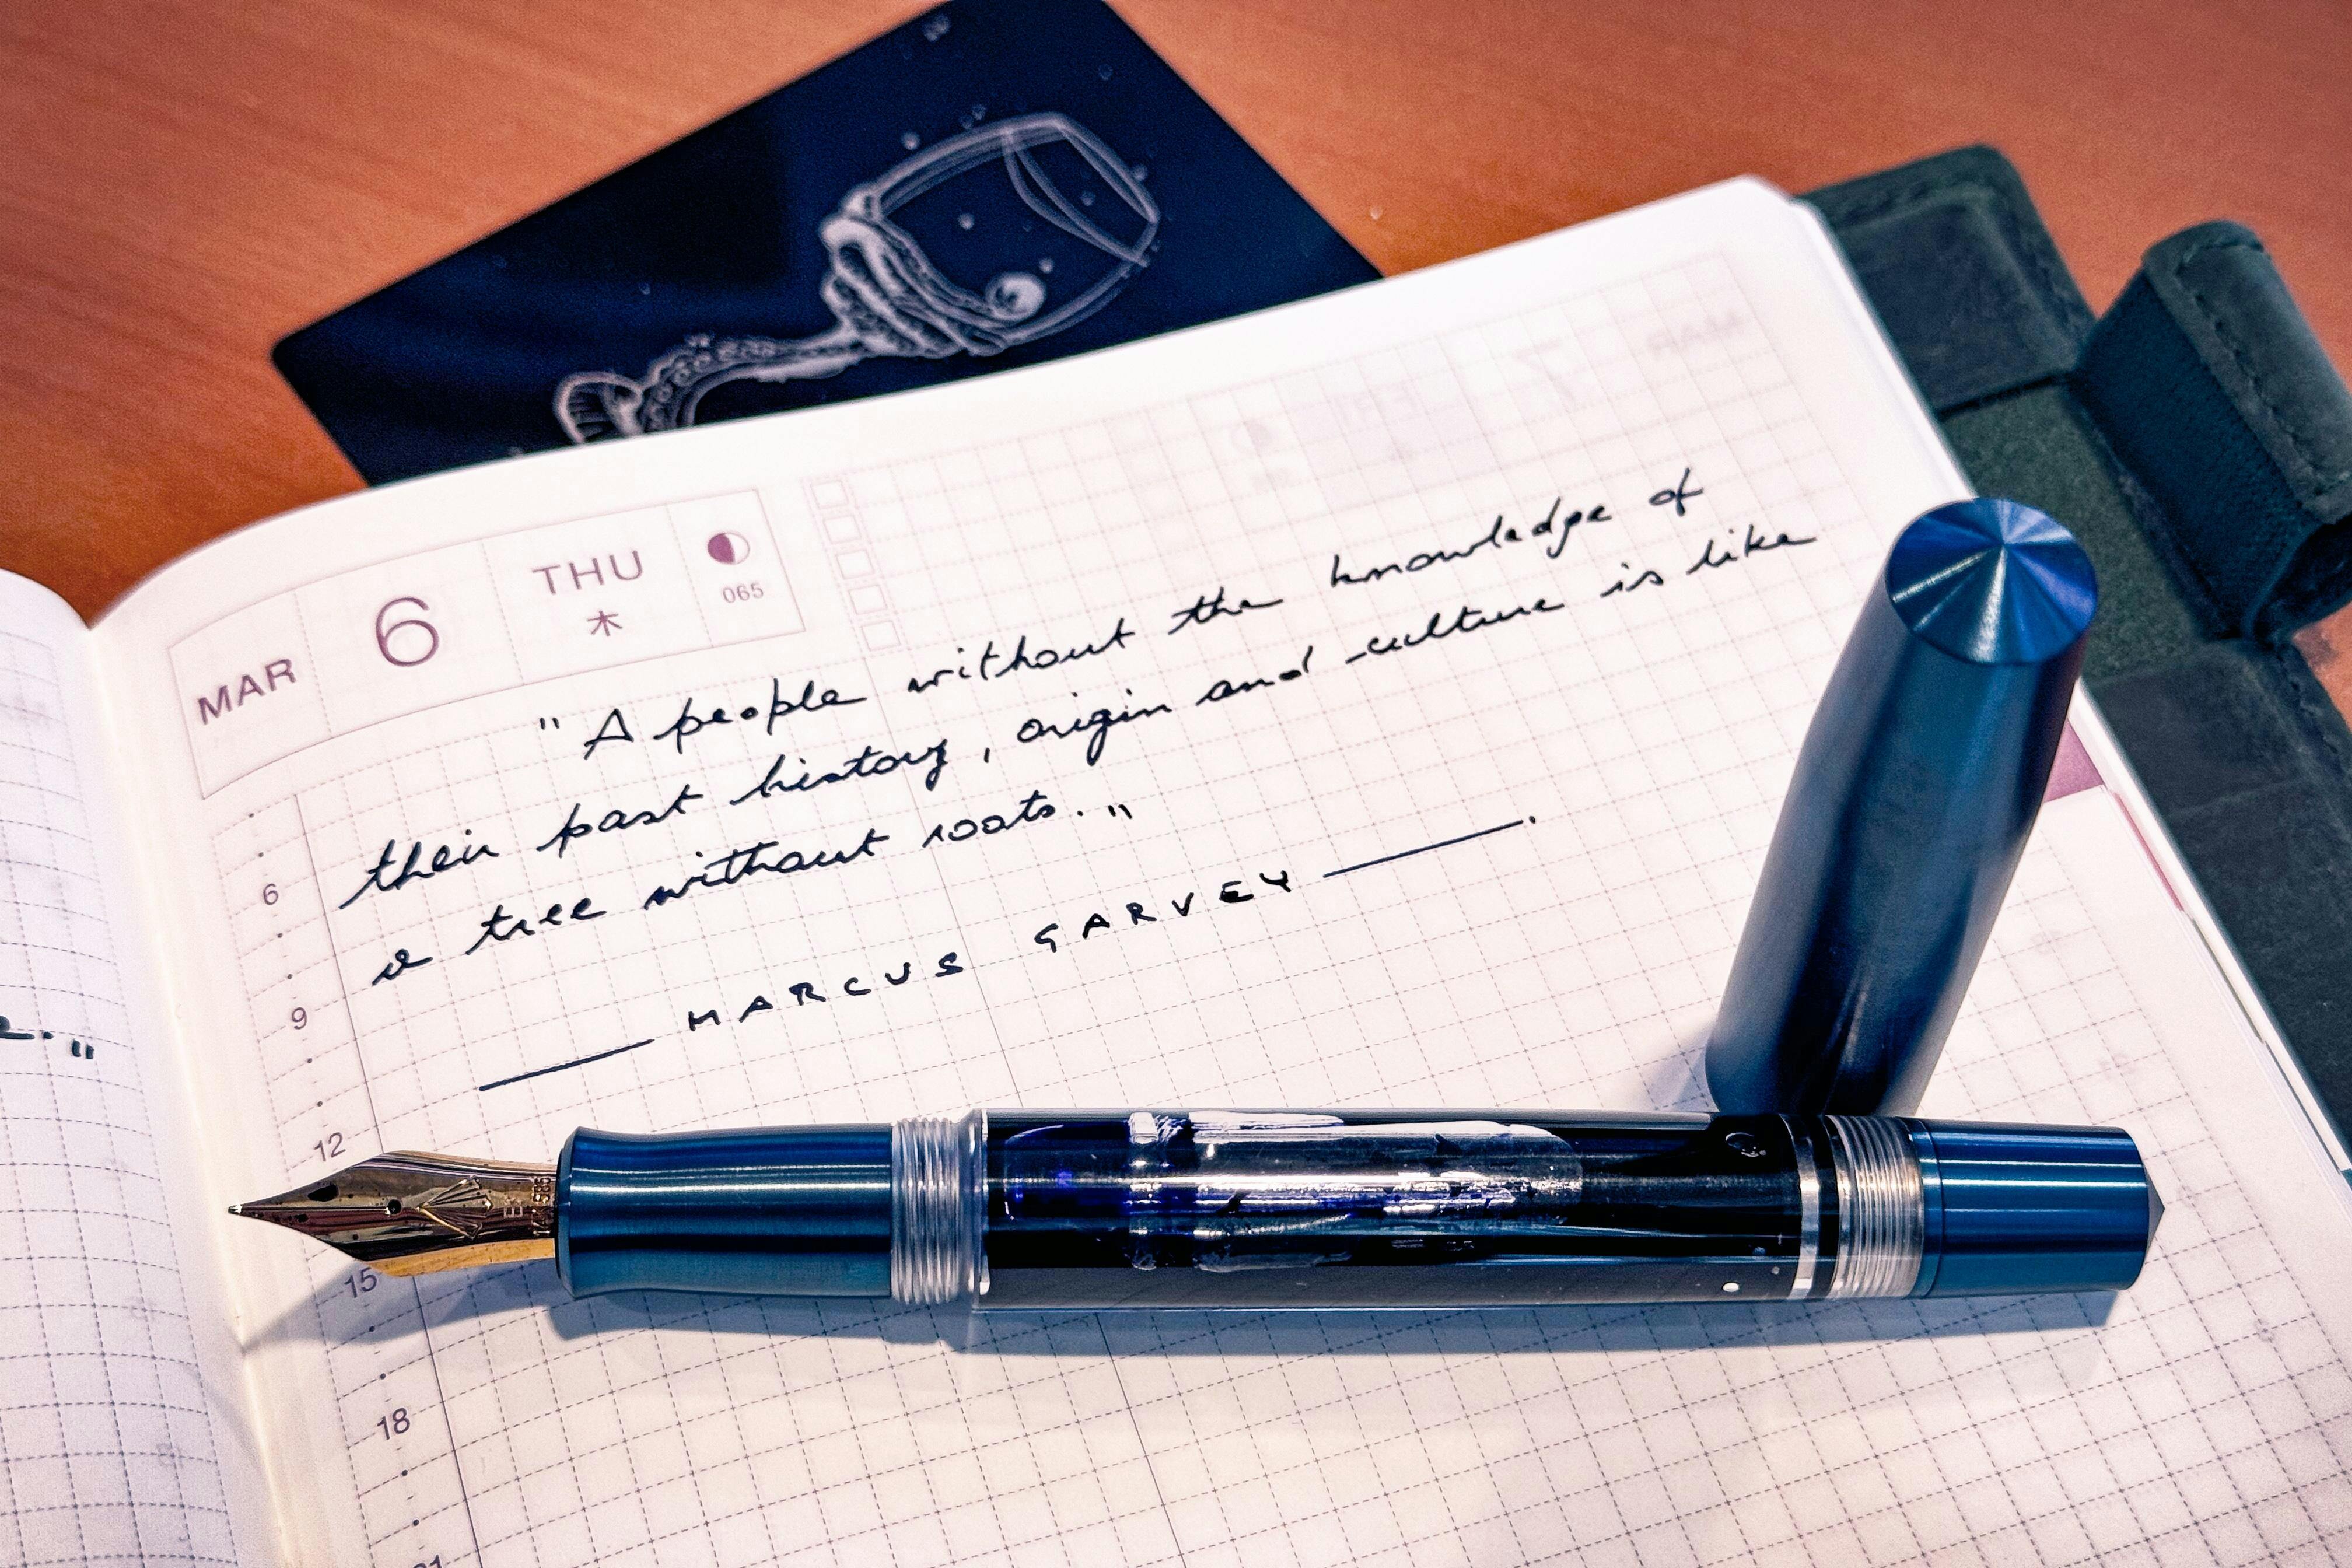 MAR 6 THU 木 065
"A people without the knowledge of
their past history, origin and culture is like
a tree without roots."
MARCUS GARVEY
6
9
12
15
18
21